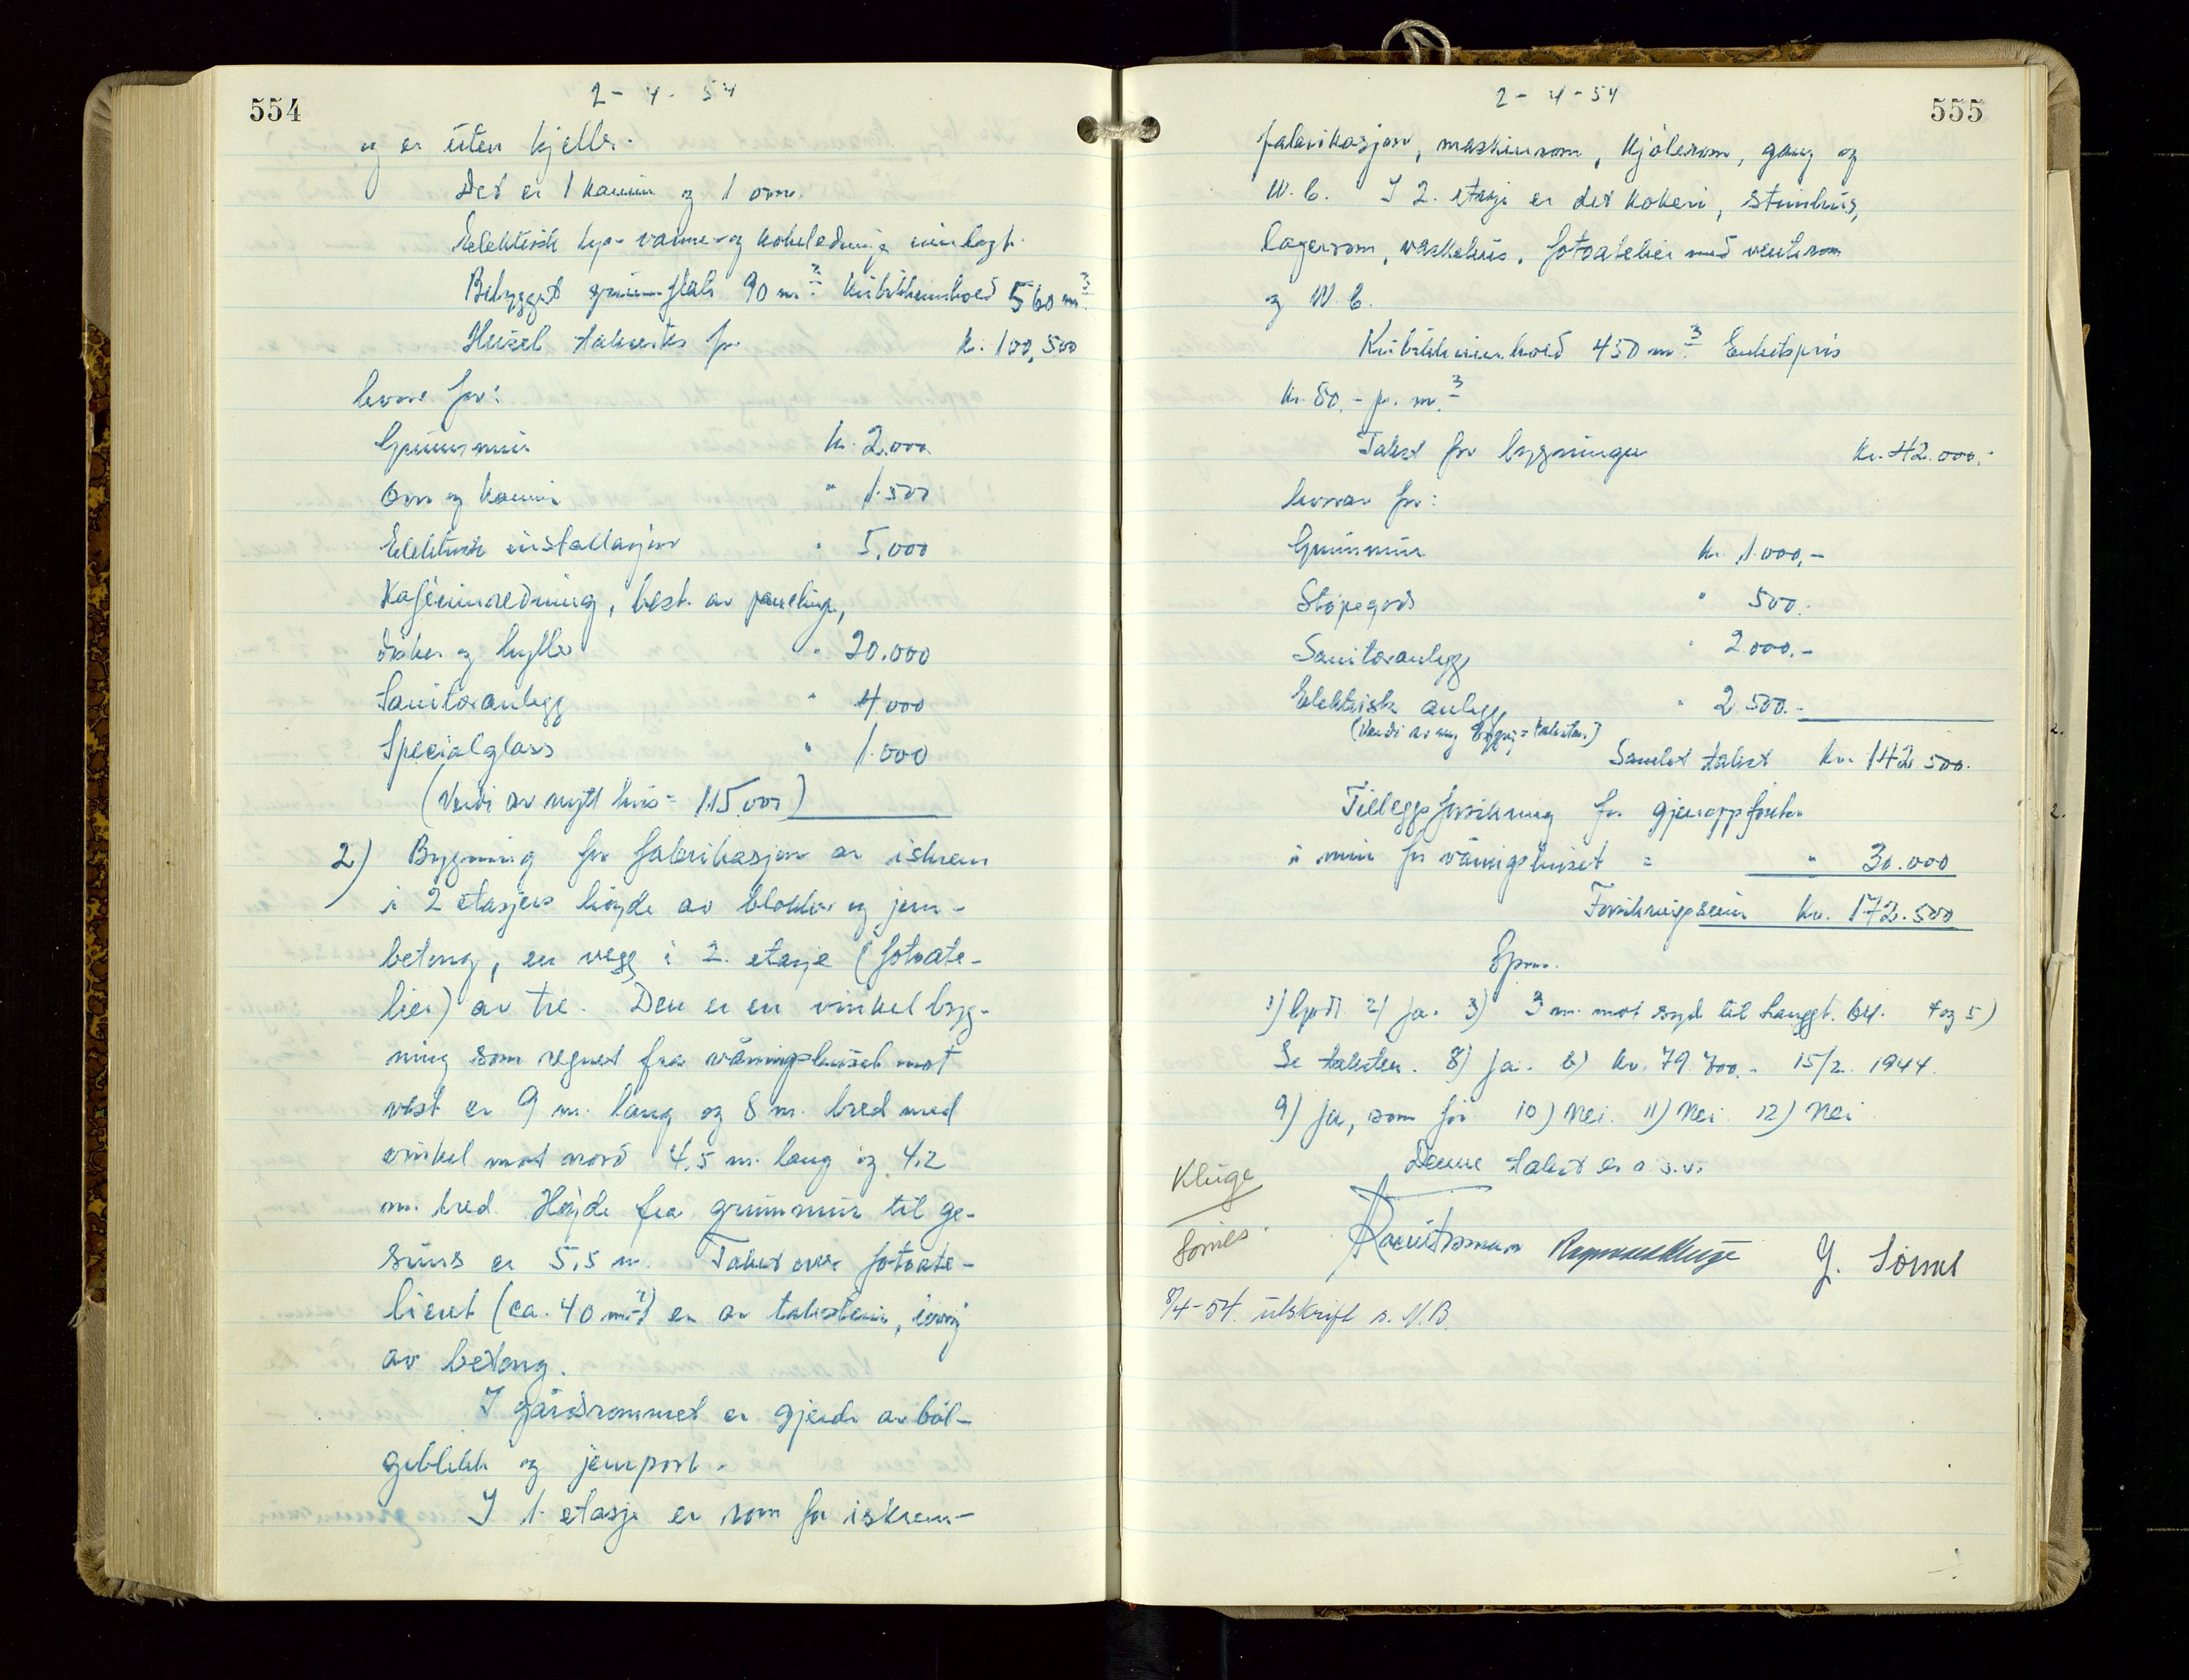 554
2-4-54
og er uten kjeller.
Det er 1 kamin og 1 ovn.
Elektrisk lys- varme- og kokeledninger innlagt.
Bebygget grunnflate 90 m². Kubikkinnhold 560 m³.
Huset takseres for kr. 100,500
herav for:
Grunnmur kr. 2.000
Ovn og kamin " 1.500
Elektrisk installasjon " 5.000
Kaféinnredning, best. av paneling,
disker og hyller " 20.000
Sanitæranlegg " 4000
Specialglass " 1.000
(Verdi av nytt hus = 115.000)
2) Bygning for fabrikasjon av iskrem
i 2 etasjers höyde av blokker og jern-
betong, en vegg i 2. etasje (fotoate-
lier) av tre. Den er en vinkelbyg-
ning som regnet fra våningshuset mot
vest er 9 m. lang og 8 m. bred med
vinkel mot nord 4,5 m. lang og 4,2
m. bred. Höyde fra grunnmur til ge-
sims er 5,5 m. Taket over fotoate-
lieret (ca. 40 m²) er av takstein, iövrig
av betong.
I gårdsrommet er gjerde av böl-
geblikk og jernport.
I 1. etasje er rom for iskrem-
555
2-4-54
fabrikasjon, maskinrom, kjölerom, gang og
W.C. I 2. etasje er det kokeri, stuinhus,
lagerrom, vaskehus, fotoatelier med venterom
og W.C.
Kubikkinnhold 450 m³. Enhetspris
kr. 80.- pr. m.³
Takst for bygningen kr. 42.000.-
herav for:
Grunnmur kr. 1.000,-
Støpegods " 500.-
Sanitæranlegg " 2000.-
Elektrisk anlegg " 2.500.-
(Verdi av ny bygg = taksten)
Samlet takst kr. 142.500.
Tilleggsforsikring for gjenoppförelse
i mur for våningshuset = " 30.000
Forsikringssum kr. 172.500
Spm.
1) Godt 2) Ja. 3) 3 m. mot syd til Langgt. 64. 4 og 5)
Se taksten. 8) Ja. 6) kr. 79.700.- 15/2. 1944.
9) Ja, som för 10) Nei. 11) Nei. 12) Nei
Denne takst er o.s.v.
Kluge
Sörnes.
Rasmus Kluge Y. Sörnes
8/4-54. utskrift s. N.B.